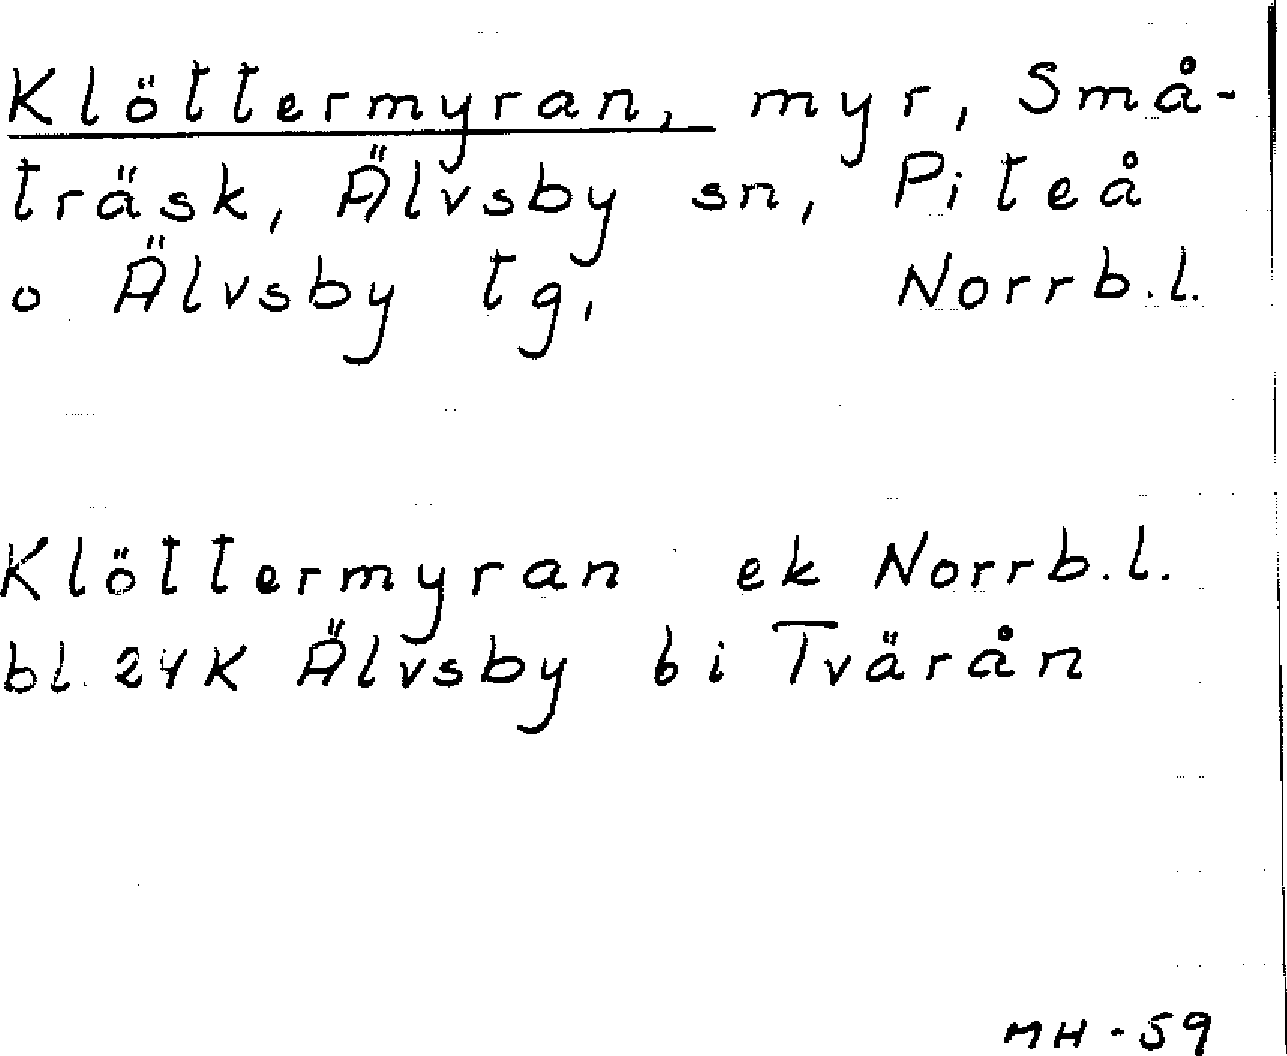 Klöttermyran, myr, Små-
träsk, Älvsby sn, Piteå
o Älvsby tg, Norrb.l.
Klöttermyran ek Norrb.l.
bl. 24K Älvsby bi Tvärån
MH-59